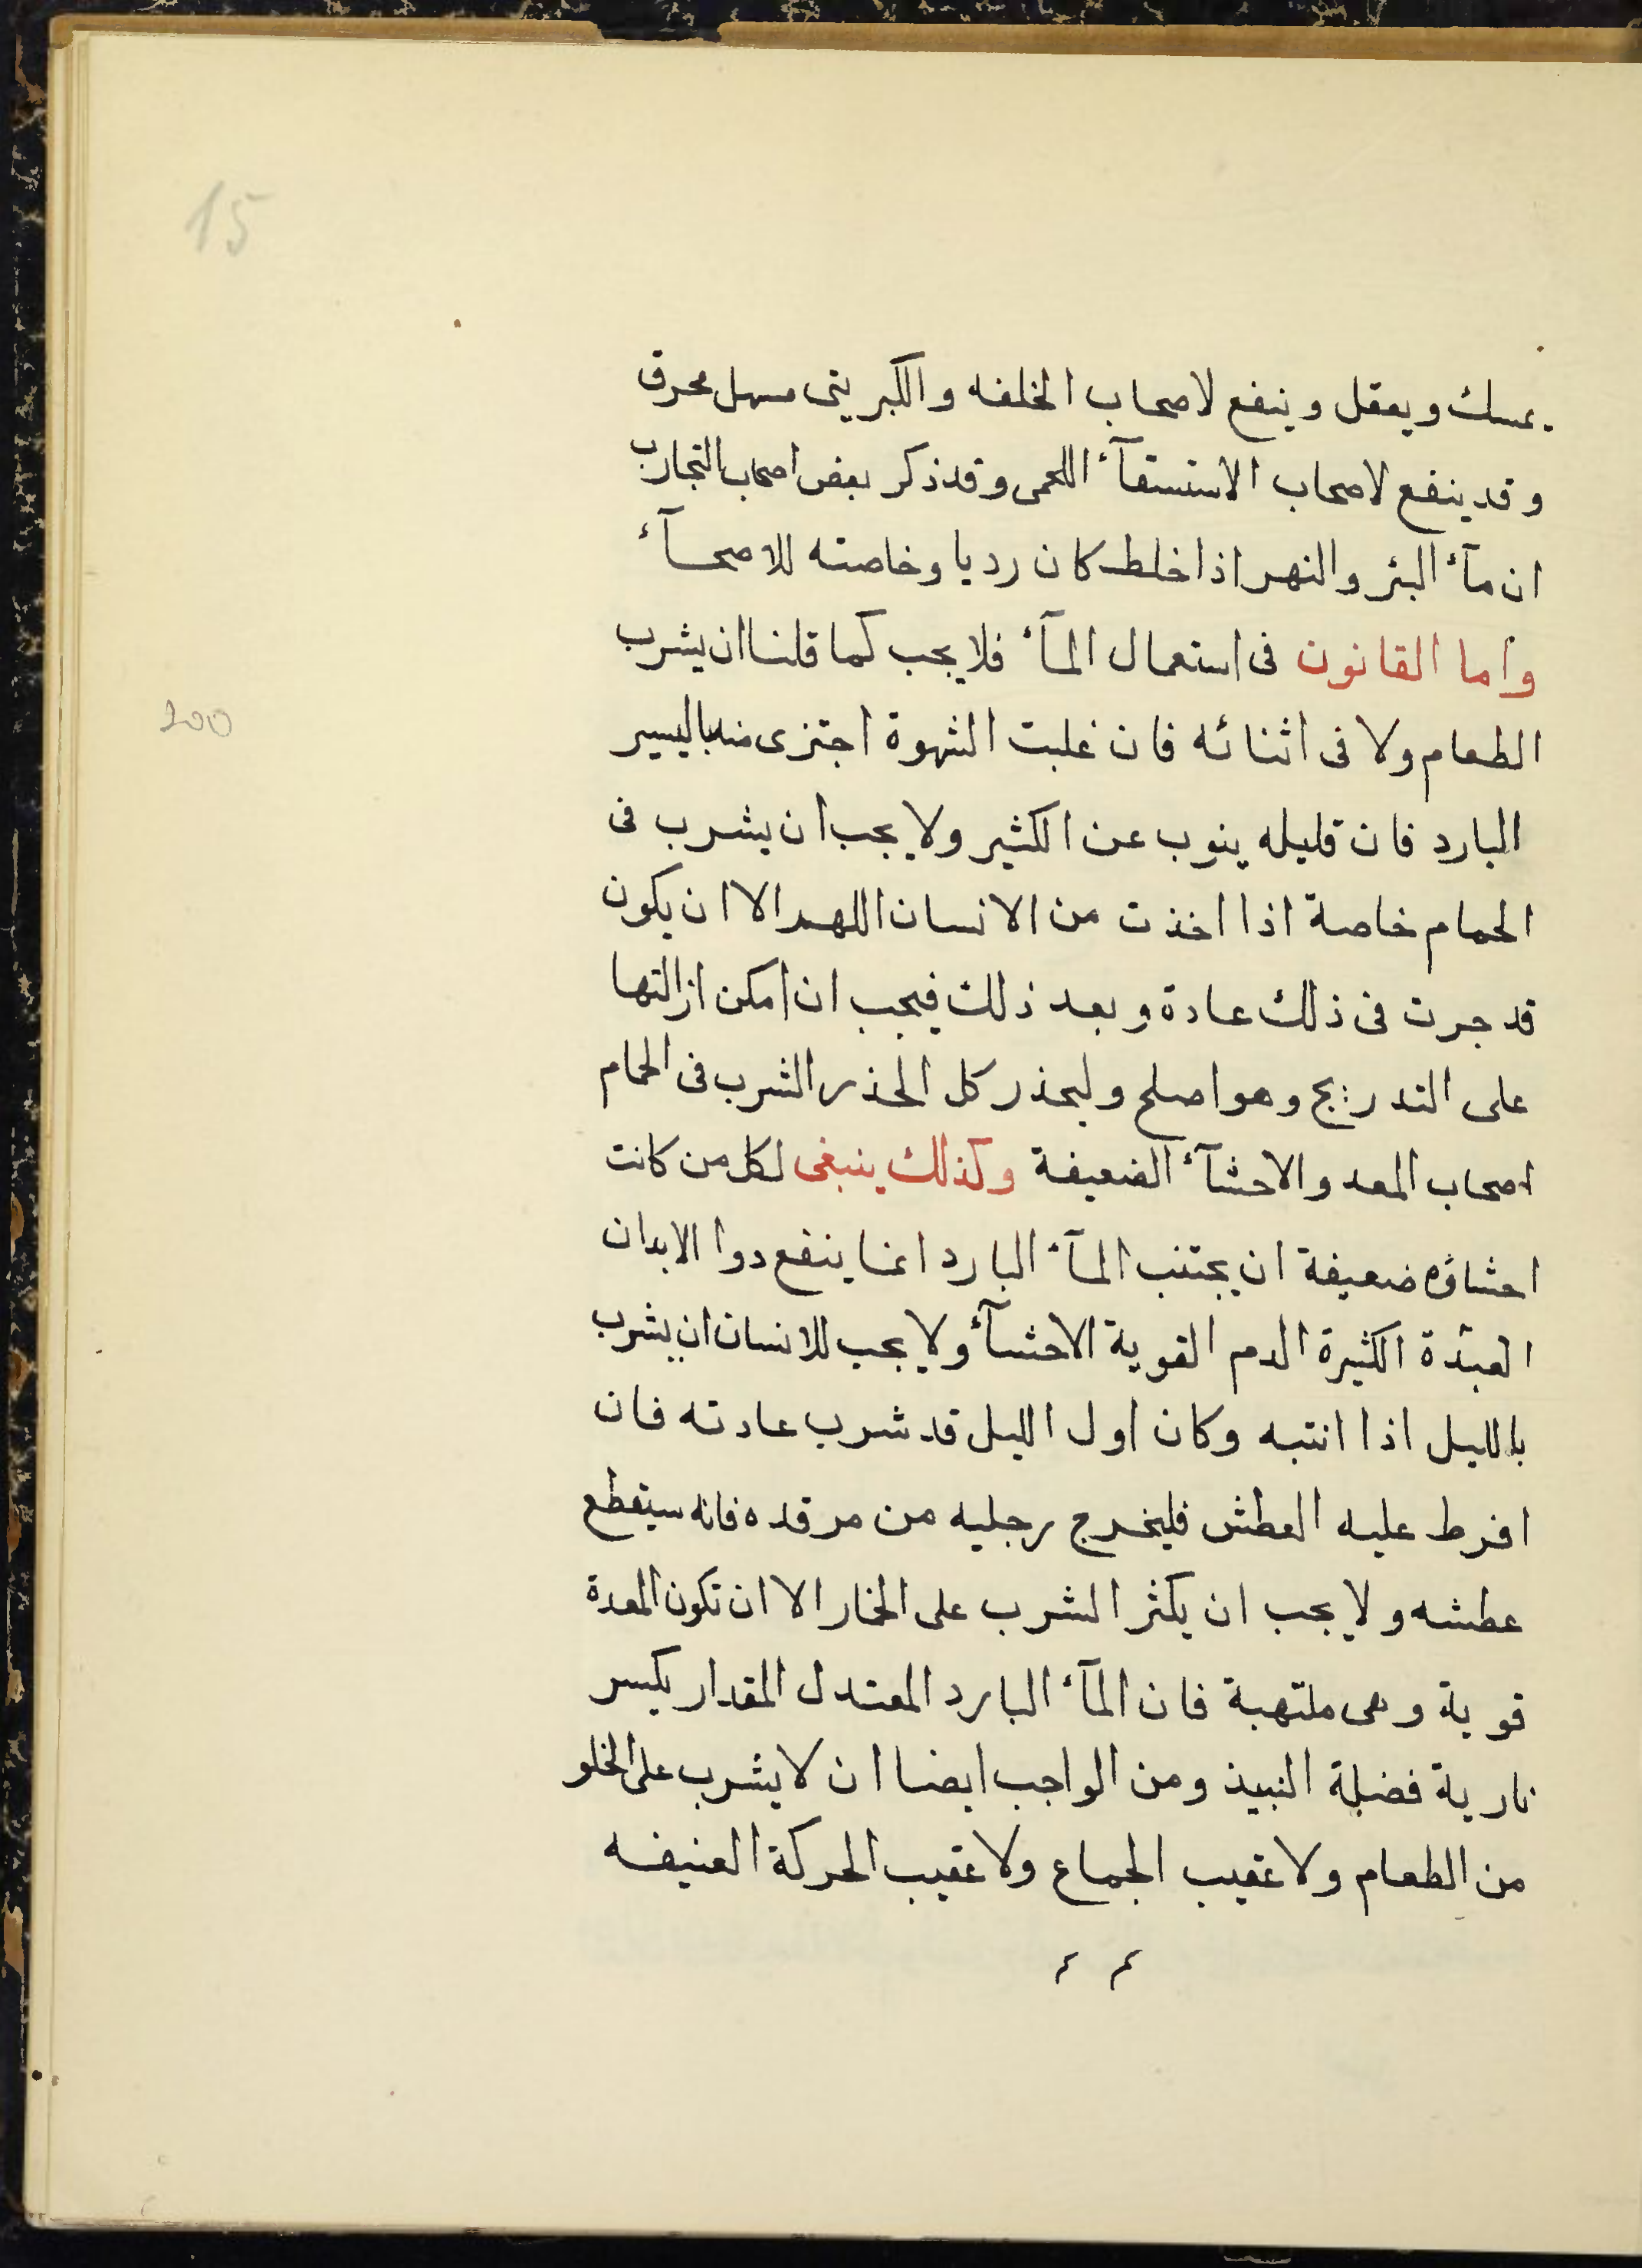 15
يمسك ويعقل وينفع لاصحاب الخلفه والكبريتى مسهل محرق
وقد ينفع لاصحاب الاستسقآء اللحمى وقد ذكر بعض اصحاب التجارب
ان مآء البئر والنهر اذا خلط كان رديا وخاصته للاصحآء
واما القانون فى استعمال المآء فلا يجب كما قلنا ان يشرب
200
الطعام ولا فى اثنائه فان غلبت الشهوة اجتزى منه باليسير
البارد فان قليله ينوب عن الكثير ولا يجب ان يشرب فى
الحمام خاصة اذا اخذت من الانسان اللهم الا ان يكون
قد جرت فى ذلك عادة وبعد ذلك فيجب ان امكن ازالتها
على التدريج وهو اصلح وليحذر كل الحذر الشرب فى الحمام
اصحاب المعد والاحشآء الضعيفة وكذلك ينبغى لكل من كانت
احشاؤه ضعيفة ان يجتنب المآء البارد انما ينفع دوا الابدان
العبدة الكثيرة الدم القوية الاحشآء ولا يجب للانسان ان يشرب
بالليل اذا انتبه وكان اول الليل قد شرب عادته فان
افرط عليه العطش فليخرج رجليه من مرقده فانه سيقطع
عطشه ولا يجب ان يكثر الشرب على الخمار الا ان تكون المعدة
قوية وهى ملتهبة فان المآء البارد المعتدل المقدار يكسر
نارية فضلة النبيذ ومن الواجب ايضا ان لا يشرب على الخلو
من الطعام ولا عقيب الجماع ولا عقيب الحركة العنيفه